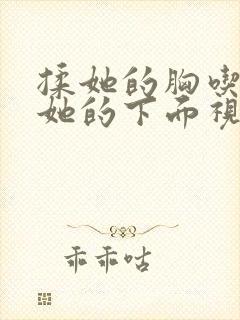 揉她的胸喫
她的下而視
乖乖咕